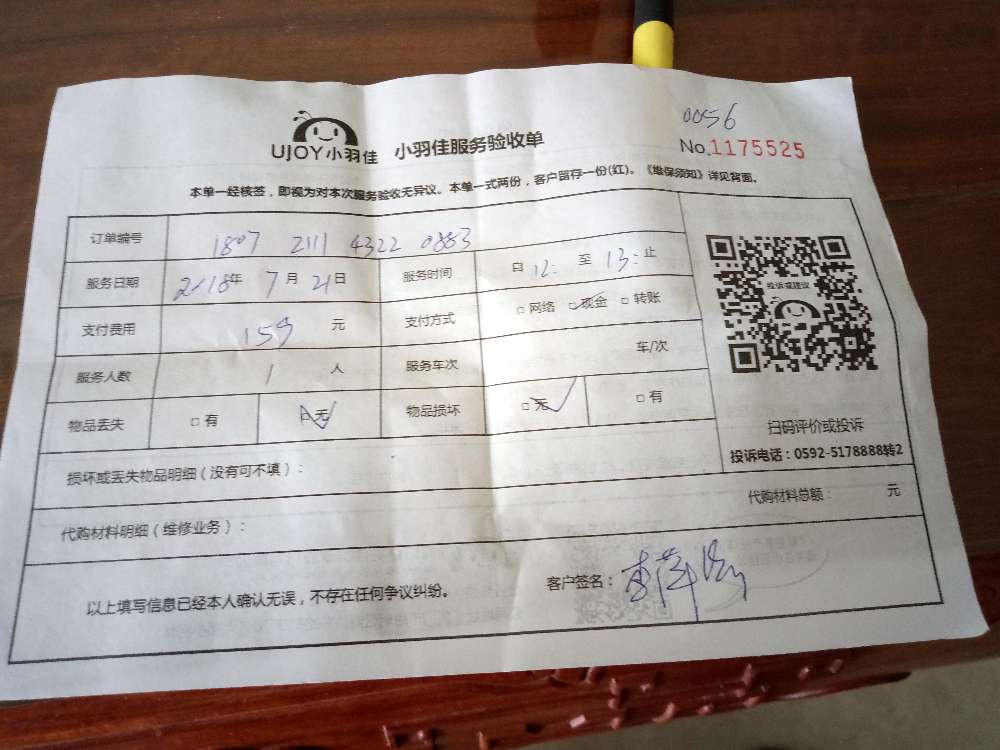 0056
UJOY小羽佳 小羽佳服务验收单 No.1175525
本单一经核签，即视为对本次服务验收无异议。本单一式两份，客户留存一份(红)。《维保须知》详见背面。
订单编号 1807 2111 4322 0883
服务日期 2018年 7月 21日 服务时间 自 12: 至 13: 止
支付费用 159 元 支付方式 □ 网络 □ 现金 □ 转账
服务人数 1 人 服务车次 车/次
物品丢失 □ 有 □ 无 物品损坏 □ 无 □ 有
投诉或建议
扫码评价或投诉
投诉电话：0592-5178888转2
损坏或丢失物品明细（没有可不填）：
代购材料明细（维修业务）： 代购材料总额： 元
以上填写信息已经本人确认无误，不存在任何争议纠纷。 客户签名：